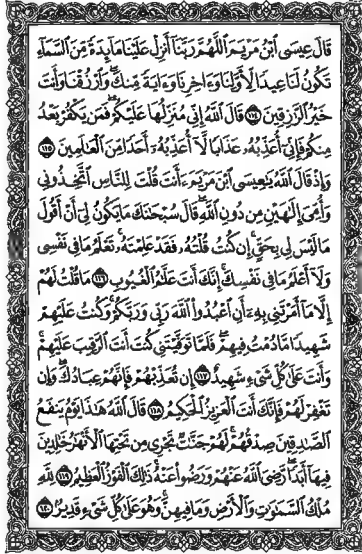 قَالَ عِيسَى ٱبْنُ مَرْيَمَ ٱللَّهُمَّ رَبَّنَآ أَنزِلْ عَلَيْنَا مَآئِدَةً مِّنَ ٱلسَّمَآءِ
تَكُونُ لَنَا عِيدًا لِّأَوَّلِنَا وَءَاخِرِنَا وَءَايَةً مِّنكَ وَٱرْزُقْنَا وَأَنتَ
خَيْرُ ٱلرَّٰزِقِينَ ١١٤ قَالَ ٱللَّهُ إِنِّى مُنَزِّلُهَا عَلَيْكُمْ فَمَن يَكْفُرْ بَعْدُ
مِنكُمْ فَإِنِّىٓ أُعَذِّبُهُۥ عَذَابًا لَّآ أُعَذِّبُهُۥٓ أَحَدًا مِّنَ ٱلْعَٰلَمِينَ ١١٥
وَإِذْ قَالَ ٱللَّهُ يَٰعِيسَى ٱبْنَ مَرْيَمَ ءَأَنتَ قُلْتَ لِلنَّاسِ ٱتَّخِذُونِى
وَأُمِّىَ إِلَٰهَيْنِ مِن دُونِ ٱللَّهِ قَالَ سُبْحَٰنَكَ مَا يَكُونُ لِىٓ أَنْ أَقُولَ
مَا لَيْسَ لِى بِحَقٍّ إِن كُنتُ قُلْتُهُۥ فَقَدْ عَلِمْتَهُۥ تَعْلَمُ مَا فِى نَفْسِى
وَلَآ أَعْلَمُ مَا فِى نَفْسِكَ إِنَّكَ أَنتَ عَلَّٰمُ ٱلْغُيُوبِ ١١٦ مَا قُلْتُ لَهُمْ
إِلَّا مَآ أَمَرْتَنِى بِهِۦٓ أَنِ ٱعْبُدُوا۟ ٱللَّهَ رَبِّى وَرَبَّكُمْ وَكُنتُ عَلَيْهِمْ
شَهِيدًا مَّا دُمْتُ فِيهِمْ فَلَمَّا تَوَفَّيْتَنِى كُنتَ أَنتَ ٱلرَّقِيبَ عَلَيْهِمْ
وَأَنتَ عَلَىٰ كُلِّ شَىْءٍ شَهِيدٌ ١١٧ إِن تُعَذِّبْهُمْ فَإِنَّهُمْ عِبَادُكَ وَإِن
تَغْفِرْ لَهُمْ فَإِنَّكَ أَنتَ ٱلْعَزِيزُ ٱلْحَكِيمُ ١١٨ قَالَ ٱللَّهُ هَٰذَا يَوْمُ يَنفَعُ
ٱلصَّٰدِقِينَ صِدْقُهُمْ لَهُمْ جَنَّٰتٌ تَجْرِى مِن تَحْتِهَا ٱلْأَنْهَٰرُ خَٰلِدِينَ
فِيهَآ أَبَدًا رَّضِىَ ٱللَّهُ عَنْهُمْ وَرَضُوا۟ عَنْهُ ذَٰلِكَ ٱلْفَوْزُ ٱلْعَظِيمُ ١١٩ لِلَّهِ
مُلْكُ ٱلسَّمَٰوَٰتِ وَٱلْأَرْضِ وَمَا فِيهِنَّ وَهُوَ عَلَىٰ كُلِّ شَىْءٍ قَدِيرٌۢ ١٢٠